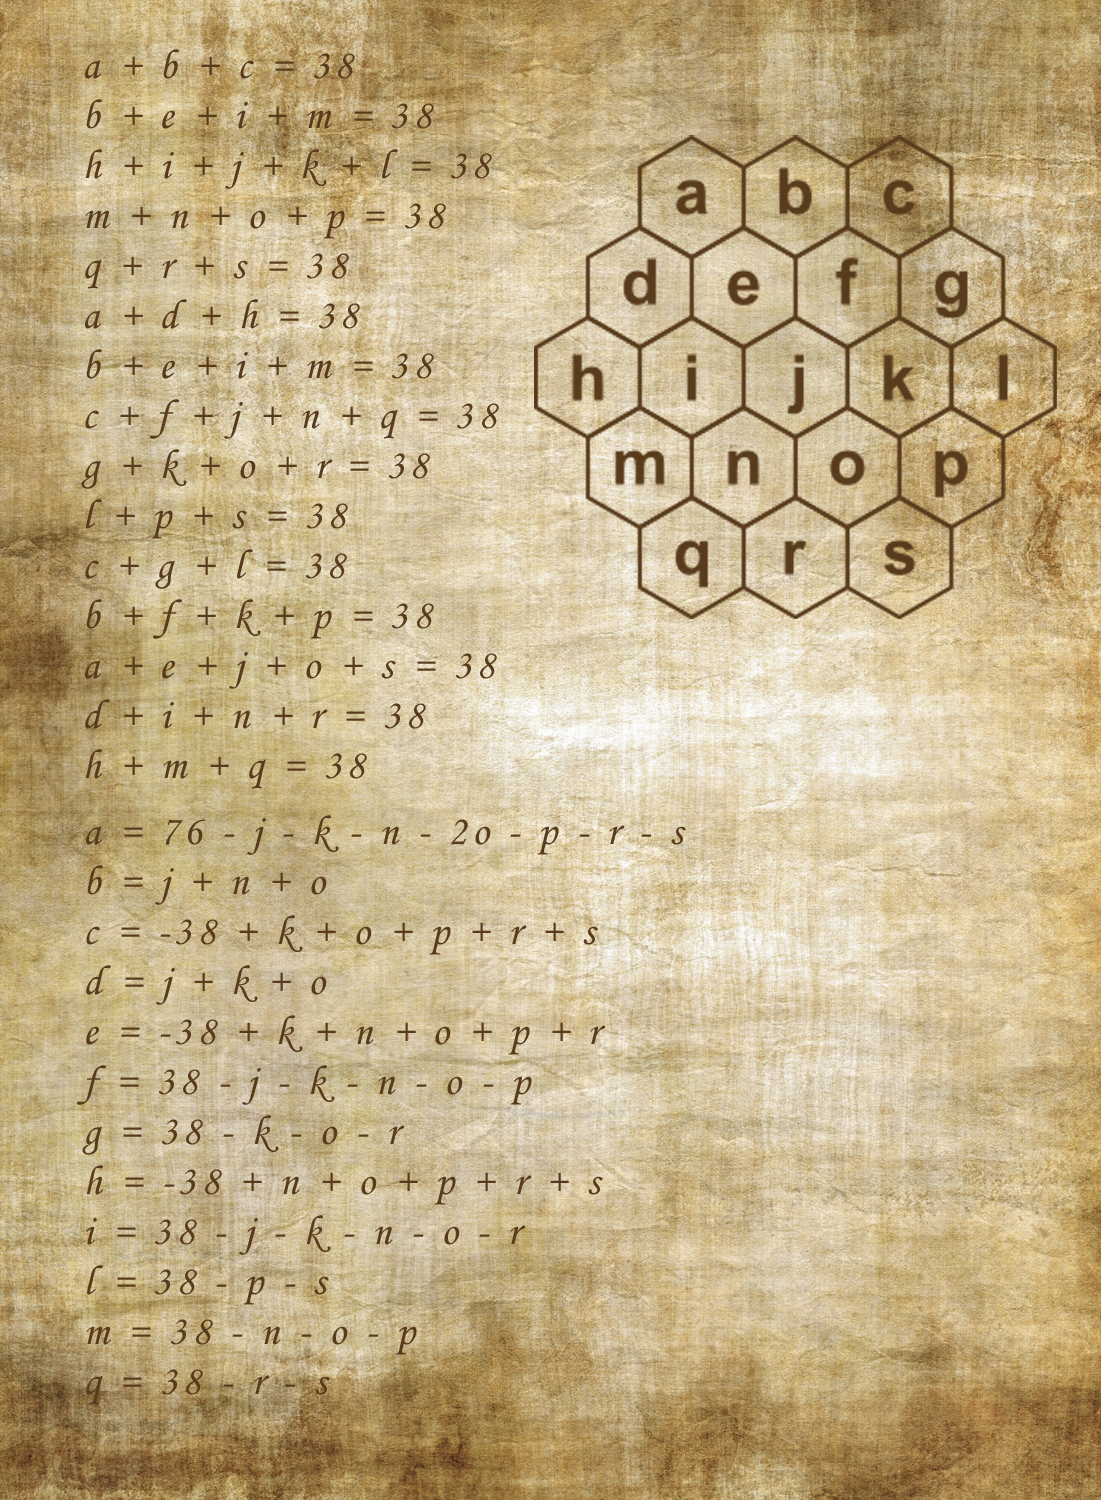 a + b + c = 38
b + e + i + m = 38
h + i + j + k + l = 38
m + n + o + p = 38
q + r + s = 38
a + d + h = 38
b + e + i + m = 38
c + f + j + n + q = 38
g + k + o + r = 38
l + p + s = 38
c + g + l = 38
b + f + k + p = 38
a + e + j + o + s = 38
d + i + n + r = 38
h + m + q = 38
a = 76 - j - k - n - 2o - p - r - s
b = j + n + o
c = -38 + k + o + p + r + s
d = j + k + o
e = -38 + k + n + o + p + r
f = 38 - j - k - n - o - p
g = 38 - k - o - r
h = -38 + n + o + p + r + s
i = 38 - j - k - n - o - r
l = 38 - p - s
m = 38 - n - o - p
q = 38 - r - s
a b c
d e f g
h i j k l
m n o p
q r s